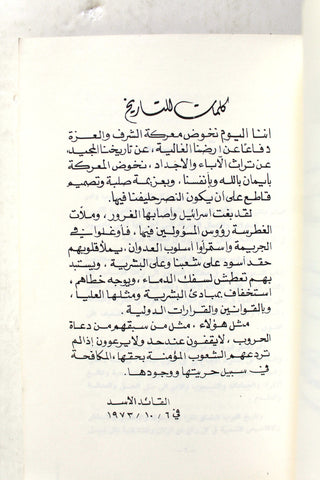 كلمات للتاريخ
اننا اليوم نخوض معركة الشرف والعزة
دفاعًا عن ارضنا الغالية، عن تاريخنا المجيد،
عن تراث الآباء والأجداد، نخوض المعركة
بايمان بالله وبأنفسنا، وبعزيمة صلبة وتصميم
قاطع على ان يكون النصر حليفنا فيها.
لقد بغت اسرائيل وأصابها الغرور، وملأت
الغطرسة رؤوس المسؤولين فيها، فأوغلوا في
الجريمة واستمرأوا أسلوب العدوان. يملأ قلوبهم
حقد أسود على شعبنا وعلى البشرية، ويستبد
بهم تعطش لسفك الدماء، ويوجه خطاهم،
استخفاف بمبادئ البشرية ومثلها العليا،
وبالقوانين والقرارات الدولية.
مثل هؤلاء، مثل من سبقهم من دعاة
الحروب، لا يقفون عند حد ولا يرعوون اذا لم
تردعهم الشعوب المؤمنة بحقها، المكافحة
في سبيل حريتها ووجودها.
القائد الاسد
في ٦ / ١٠ / ١٩٧٣